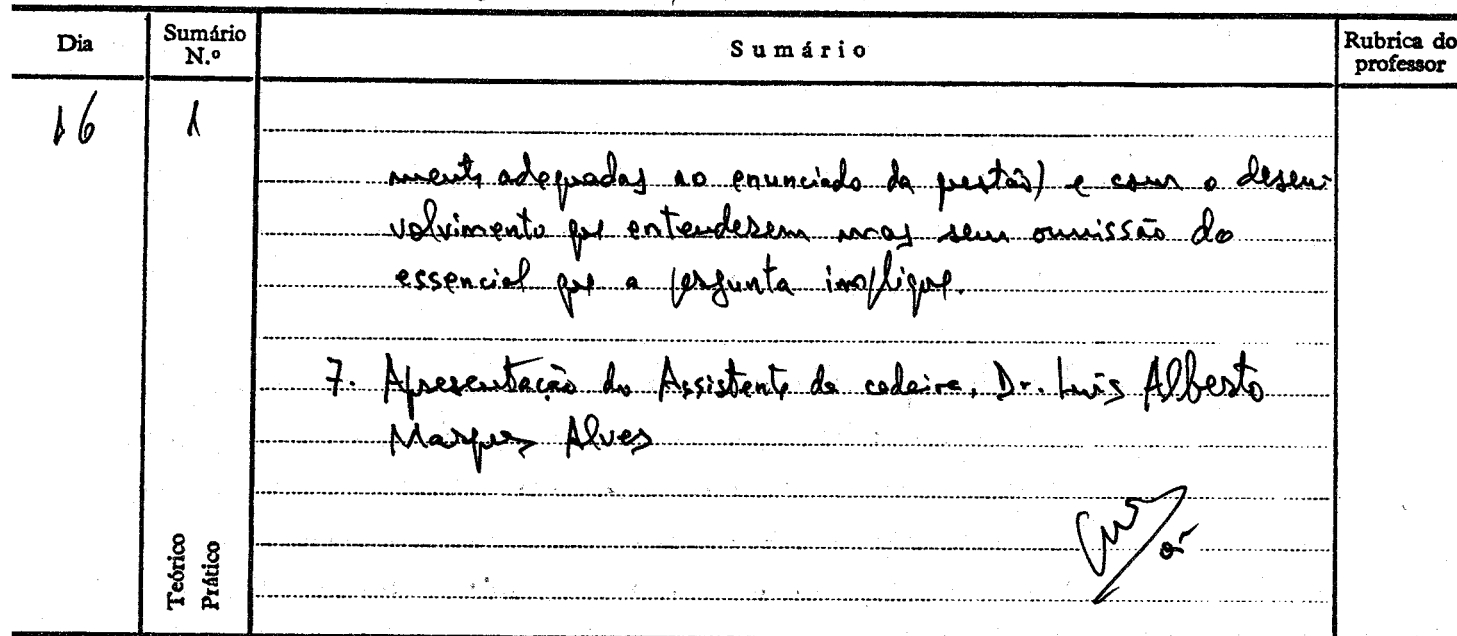 Dia
Sumário
N.º
Sumário
Rubrica do
professor
16
1
mente adequadas ao enunciado da questão) e com o desen-
volvimento que entenderem mas sem omissão do
essencial que a pergunta implique.
7. Apresentação do Assistente da cadeira, Dr. Luís Alberto
Marques Alves
Teórico
Prático